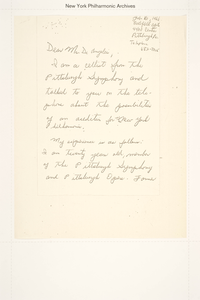 New York Philharmonic Archives
Dear Mr. De Angelis,
I am a cellist from the
Pittsburgh Symphony and
talked to you on the tele-
phone about the possibilities
of an audition for New York
Philharmonic.
My experience is as follows:
I am twenty years old, member
of the Pittsburgh Symphony
and Pittsburgh Opera.